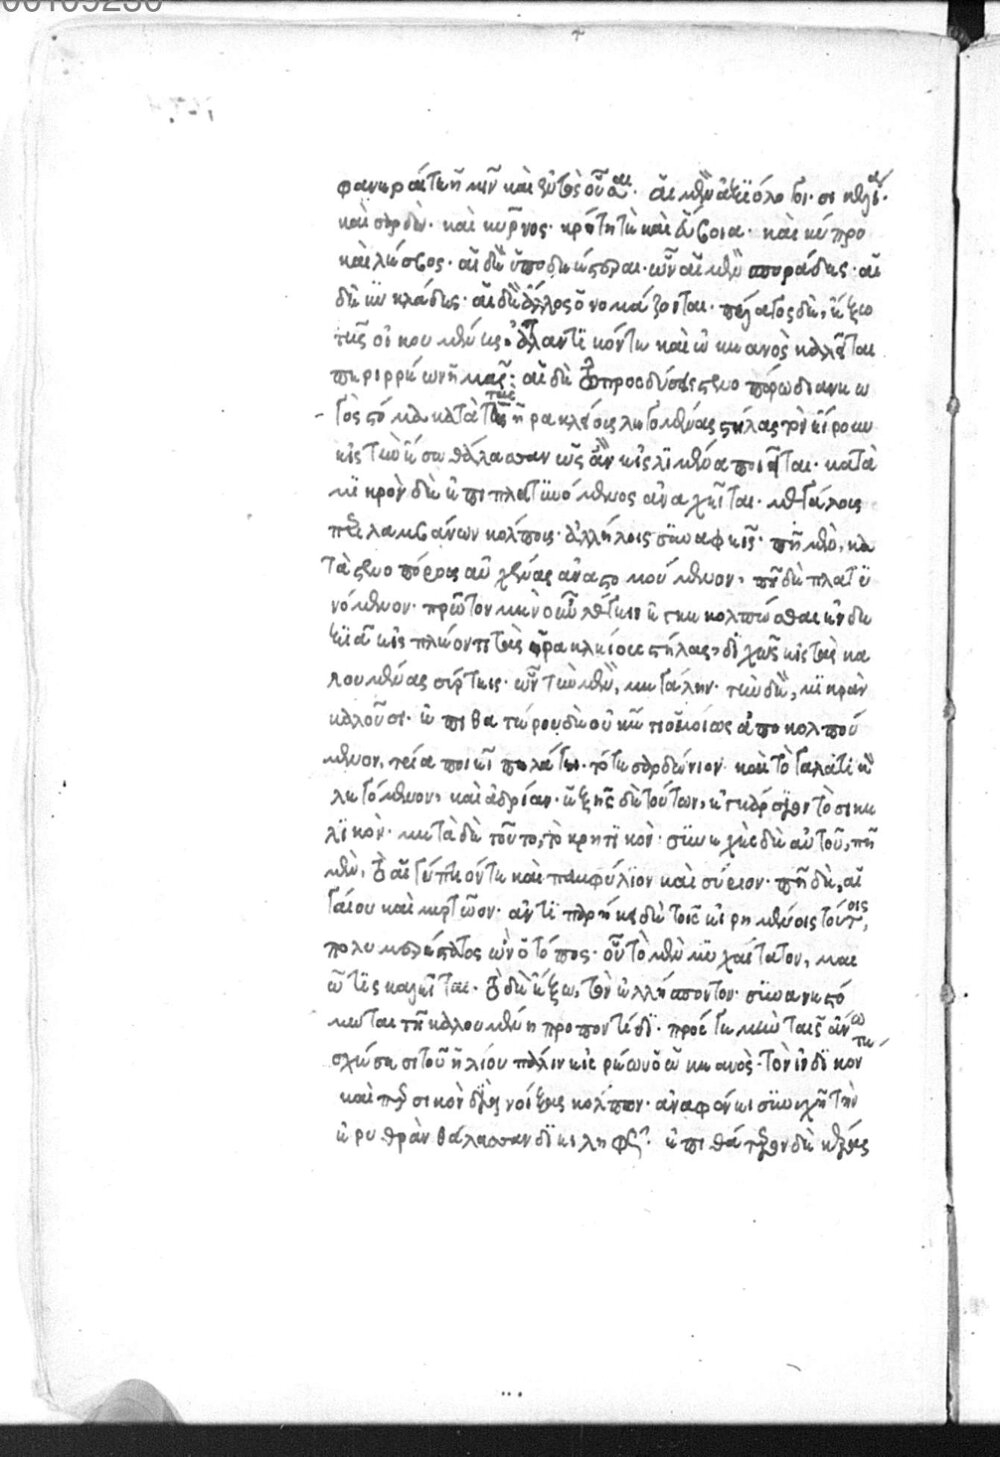 φανεραί τε ἡμῖν καὶ ἐντὸς οὖσαι. αἱ μὲν ἀξιόλογοι. σικελίαι.
καὶ σαρδὼ. καὶ κύρνος. κρήτη τε καὶ εὔβοια. καὶ κύπρο
καὶ λέσβος. αἱ δὲ ὑποδεέστεραι. ὧν αἱ μὲν σποράδες. αἱ
δὲ κυκλάδες. αἱ δὲ ἄλλως ὀνομάζονται. πέλαγος δὲ, ἔξω
τῆς οἰκουμένης. ἀτλαντικόν τε καὶ ὠκεανὸς καλεῖται
περιρρέων ἡμᾶς. αἱ δὲ πρὸς δύσεις στενοπόρω διανεω
γὸς στόμα κατὰ τὰς ἡρακλείους λεγομένας στήλας τὸν εἴσρουν
εἰς τὴν ἔσω θάλασσαν ὡς ἂν εἰς λιμένα ποιεῖται. κατὰ
μικρὸν δὲ ἐπιπλατυνόμενος ἀναχεῖται. μεγάλοις
περιλαμβάνων κόλποις. ἀλλήλοις συναφεῖς. πῆ μὲν, κα
τὰ στενοπόρους αὐχένας ἀναστομούμενον, πῆ δὲ πλατυ
νόμενον. πρῶτον μὲν οὖν λέγεται ἐγκεκολπῶσθαι ἐν δε
ξιᾶ εἰσπλέοντι τὰς ἡρακλείους στήλας, διχῶς εἰς τὰς κα
λουμένας σύρτεις. ὧν τὴν μὲν, μεγάλην. τὴν δὲ, μικρὰν
καλοῦσι. ἐπὶ θατέρου δὲ οὐκέτι ὁμοίως ἀποκολπού
μενον, τρία ποιεῖ πελάγη. τό τε σαρδώνιον καὶ τὸ γαλατικὸν
λεγόμενον, καὶ ἀδρίαν. ἑξῆς δὲ τούτων, ἐγκάρσιον τὸ σικε
λικὸν. μετὰ δὲ τοῦτο, τὸ κρητικὸν. συνεχὲς δὲ αὐτοῦ, πῆ
μὲν, τὸ αἰγύπτιόν τε καὶ παμφύλιον καὶ σύριον. πῆ δὲ, αἰ
γαίου καὶ μυρτῶον. ἀντιπαρήκει δὲ τοῖς εἰρημένοις τούτοις,
πολυμερέστατος ὢν ὁ τόπος. οὗ τὸ μὲν μυχαίτατον, μαι
ῶτις καλεῖται. τὸ δὲ ἔξω, τὸν ἑλλήσποντον. συνανεστό
μωται τῆ καλουμένη προποντίδι. πρός γε μὴν ταῖς ἀνω
σχέσεσι τοῦ ἡλίου πάλιν εἰσρέων ὁ ὠκεανὸς. τὸν ἰνδικόν τε
καὶ περσικὸν διανοίξας κόλπον. ἀναφαίνει συνεχῆ τὴν
ἐρυθρὰν θάλασσαν διειληφώς. ἐπὶ θάτερον δὲ κέρας